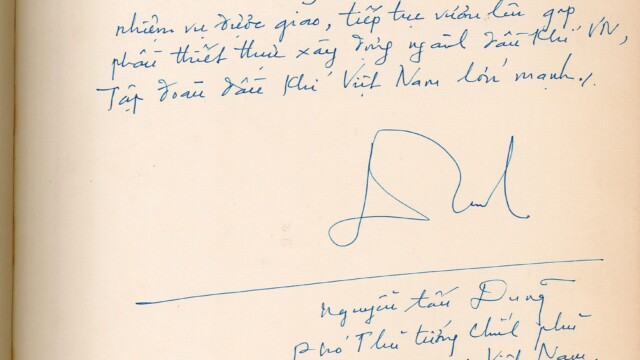 nhiệm vụ được giao, tiếp tục vươn lên góp
phần thiết thực xây dựng ngành dầu khí VN,
Tập đoàn dầu khí Việt Nam lớn mạnh./.
Nguyễn tấn Dũng
Phó Thủ tướng Chính phủ
Việt Nam